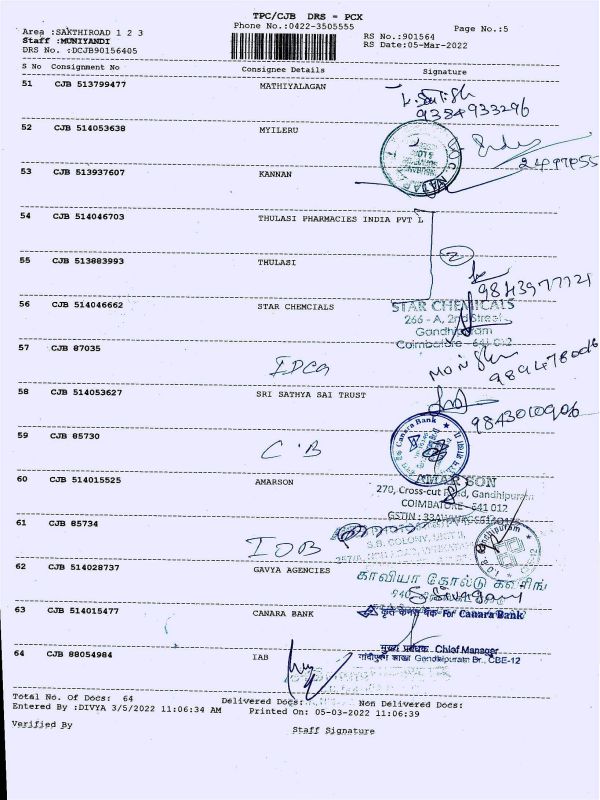 TPC/CJB DRS = PCX
Phone No.:0422-3505555
Page No.:5
Area :SAKTHIROAD 1 2 3
Staff :MUNIYANDI
DRS No. :DCJB90156405
RS No.:901564
RS Date:05-Mar-2022
S No Consignment No Consignee Details Signature
51 CJB 513799477 MATHIYALAGAN
9384933296
52 CJB 514053638 MYILERU
53 CJB 513937607 KANNAN
54 CJB 514046703 THULASI PHARMACIES INDIA PVT L
2
55 CJB 513883993 THULASI
56 CJB 514046662 STAR CHEMCIALS
STAR CHEMICALS
266 - A, 2nd Street,
Gandhipuram
Coimbatore - 641 012
57 CJB 87035
58 CJB 514053627 SRI SATHYA SAI TRUST
9843010906
Canara Bank
59 CJB 85730 C.B
60 CJB 514015525 AMARSON
AMARSON
270, Cross-cut Road, Gandhipuram
COIMBATORE - 641 012
61 CJB 85734 IOB
S.B. COLONY, UNIT II
I.O.B Gandhipuram
62 CJB 514028737 GAVYA AGENCIES
காவியா கோல்டு கவரிங்
63 CJB 514015477 CANARA BANK
कृते केनरा बैंक-For Canara Bank
मुख्य प्रबंधक Chief Manager
गांधीपुरम शाखा Gandhipuram Br., CBE-12
64 CJB 88054984 IAB
Total No. Of Docs: 64 Delivered Docs: Non Delivered Docs:
Entered By :DIVYA 3/5/2022 11:06:34 AM Printed On: 05-03-2022 11:06:39
Verified By Staff Signature